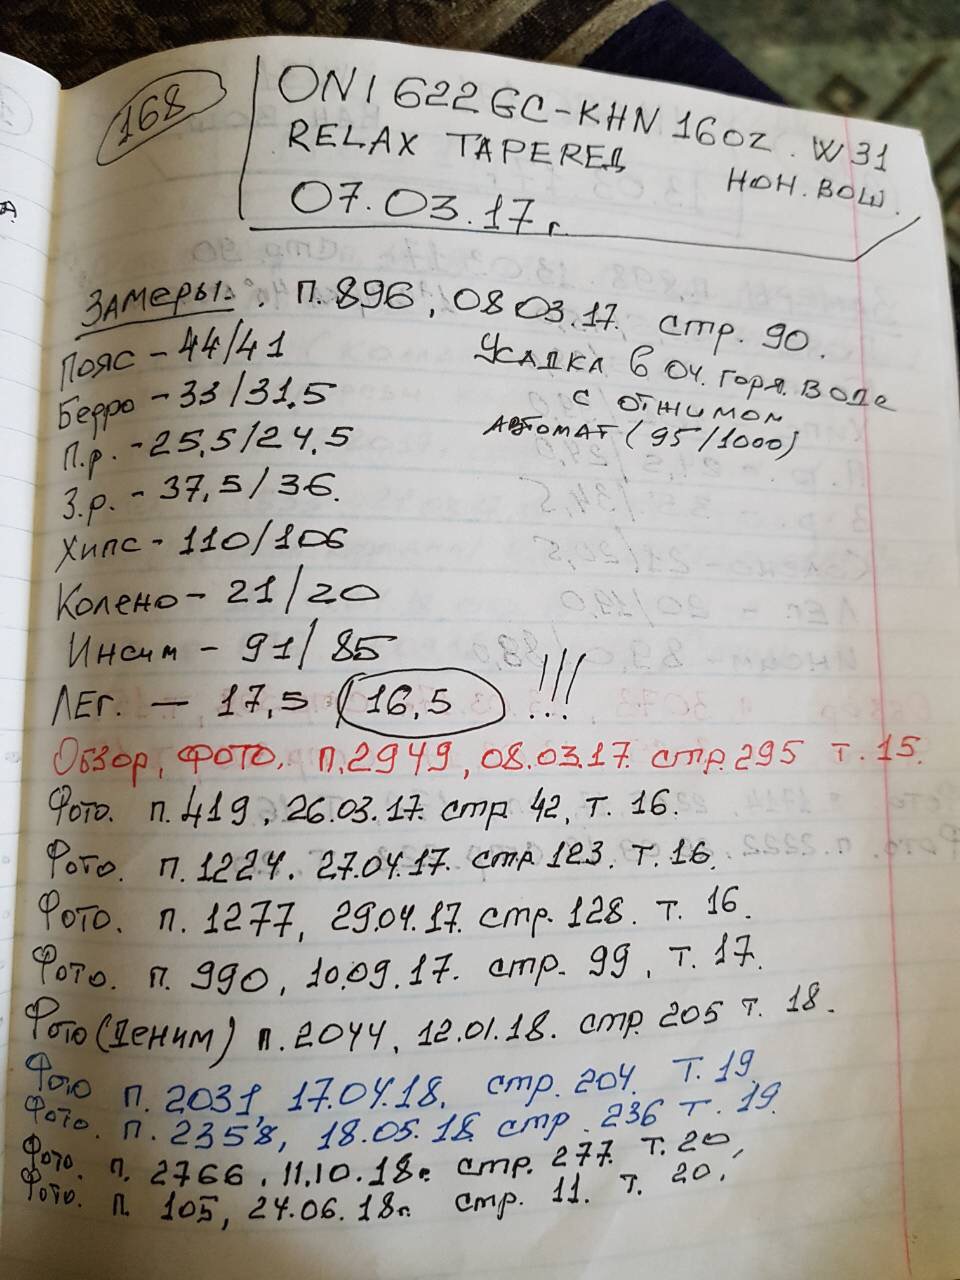 168
ONI 622GC-KHN 16OZ. W31
RELAX TAPEREД НОН. ВОШ.
07.03.17 г.
Замеры: п. 896, 08.03.17. стр. 90.
Пояс - 44/41
Усадка в оч. горя. воде
Бедро - 33/31,5
с отжимом
П.р. - 25,5/24,5
Автомат (95/1000)
З.р. - 37,5/36.
Хипс - 110/106
Колено - 21/20
Инсим - 91/85
ЛЕГ. — 17,5 (16,5) !!!
Обзор, фото. п.2949, 08.03.17. стр. 295 т. 15.
Фото. п. 419, 26.03.17. стр 42, т. 16.
Фото. п. 1224. 27.04.17. стр 123. т. 16.
Фото. п. 1277, 29.04.17. стр. 128. т. 16.
Фото. п. 990, 10.09.17. стр. 99, т. 17.
Фото (Деним) п. 2044, 12.01.18. стр. 205 т. 18.
Фото п. 2031, 17.04.18. стр. 204. т. 19
Фото. п. 2358, 18.05.18 стр. 236 т. 19.
Фото. п. 2766. 11.10.18г. стр. 277. т. 20,
Фото. п. 105, 24.06.18г. стр. 11. т. 20.